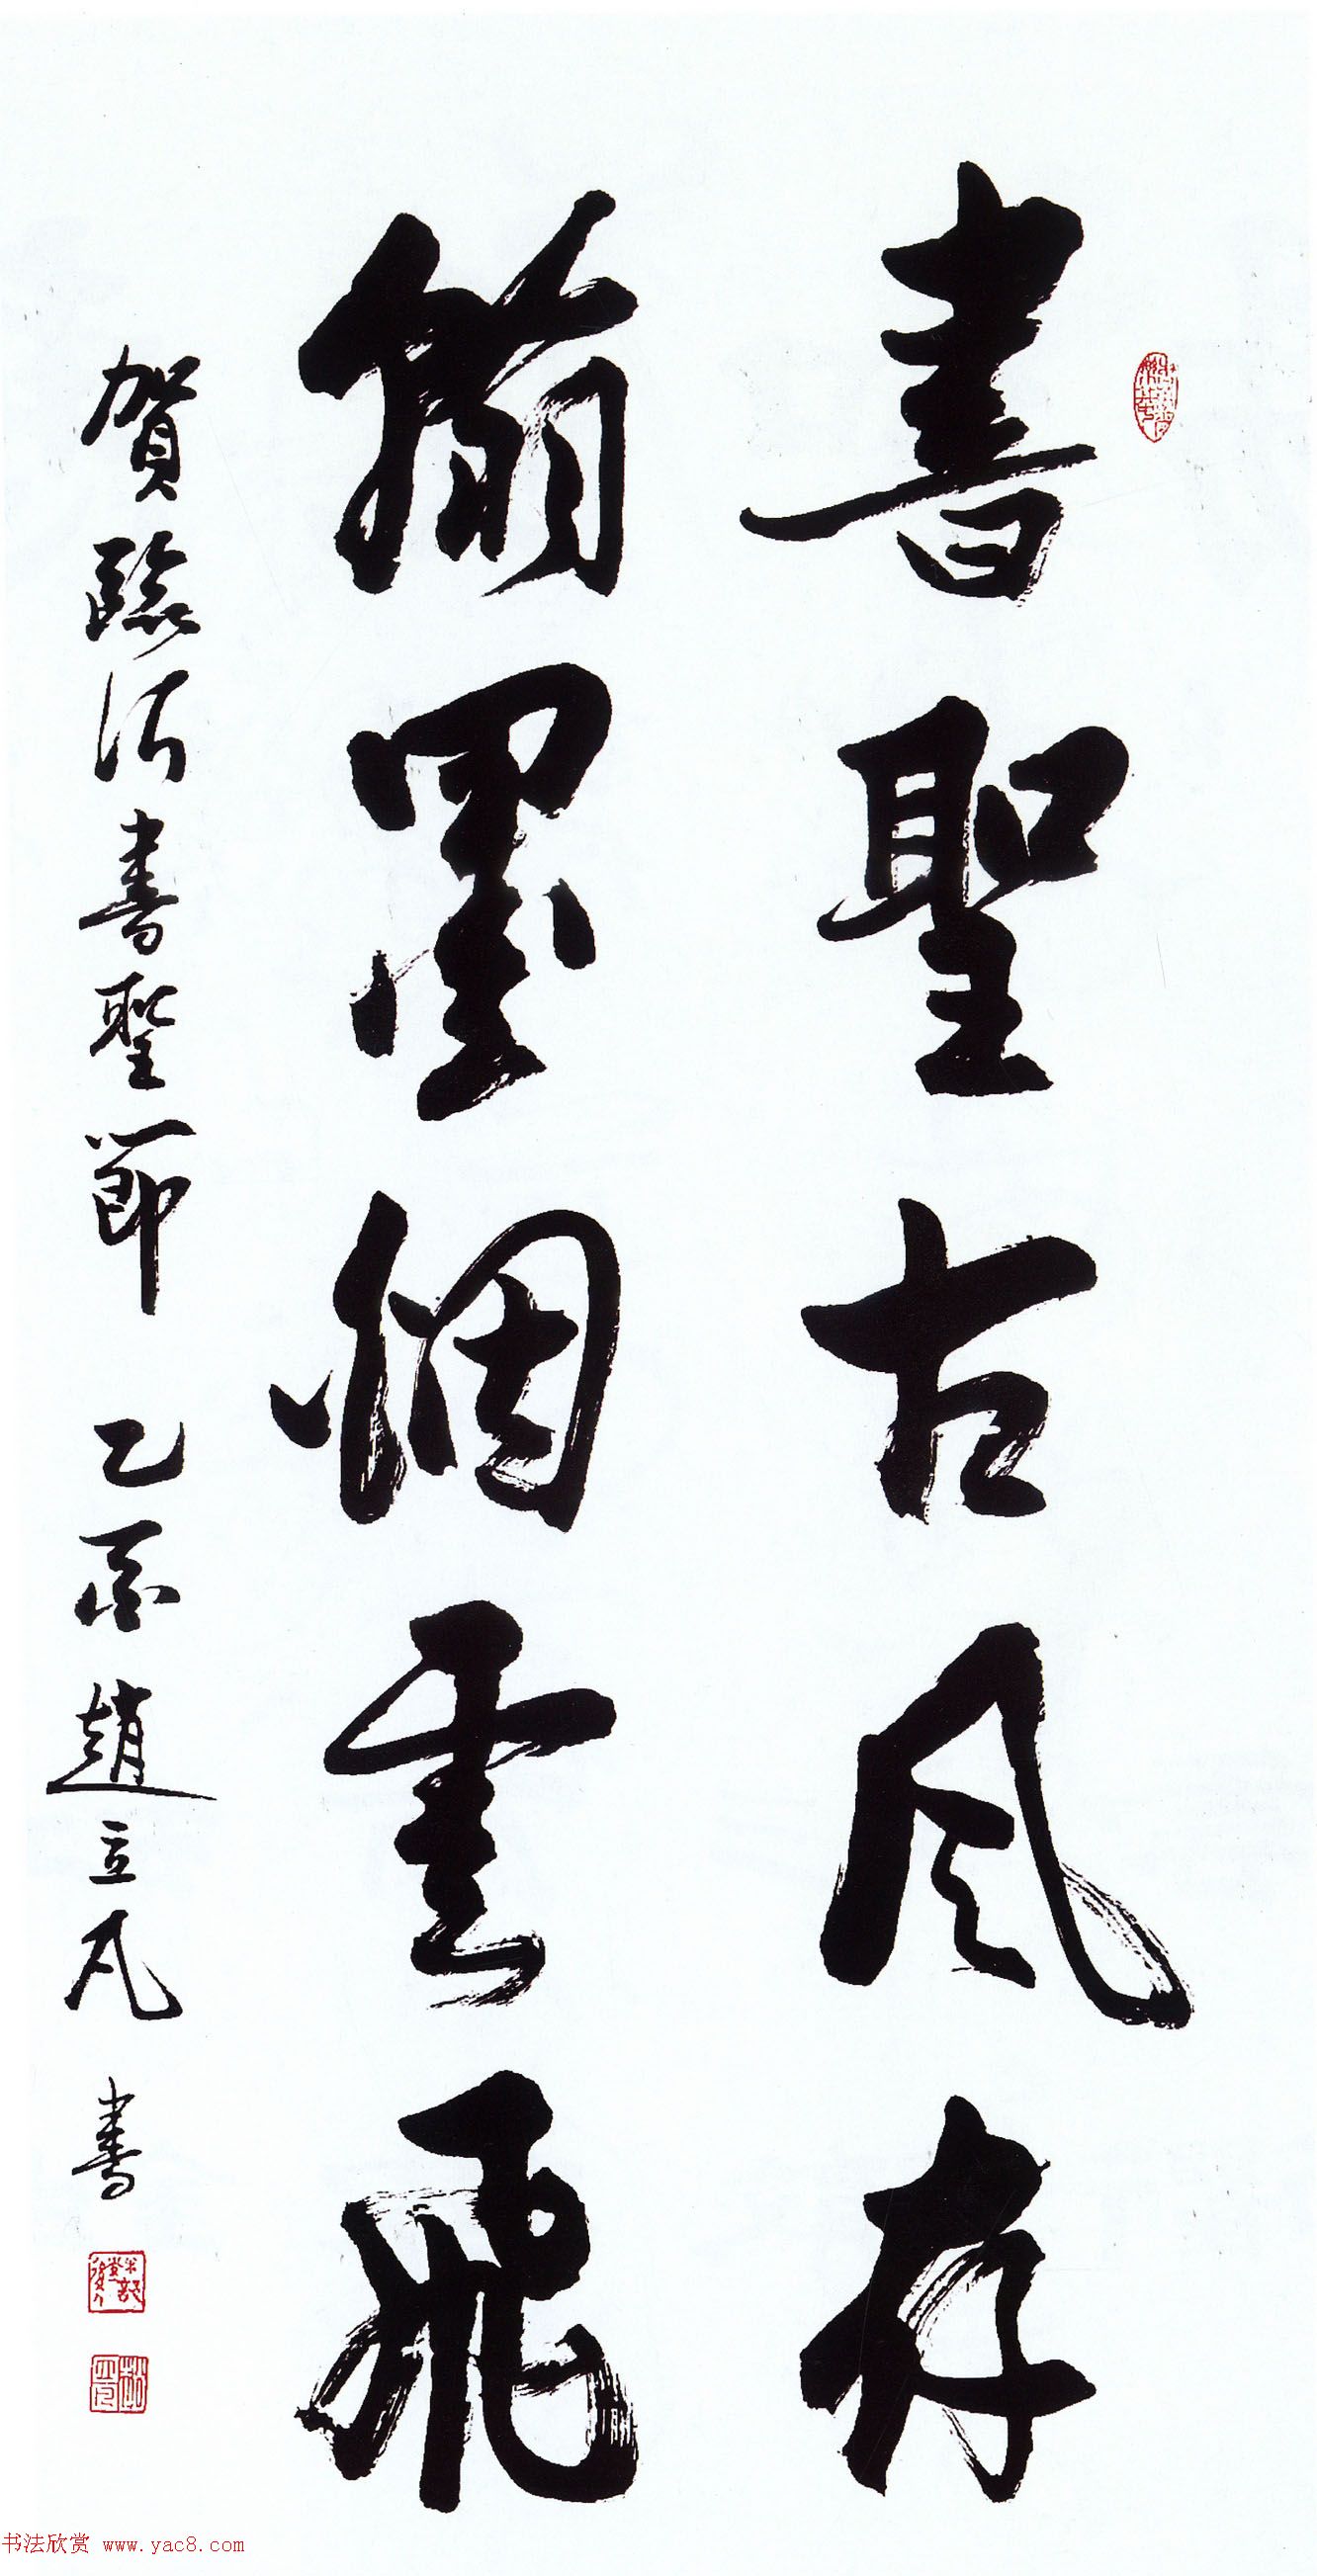 書聖古风存
翰墨烟雲飛
賀臨沂書聖節 乙酉 趙立凡 書
书法欣赏 www.yac8.com